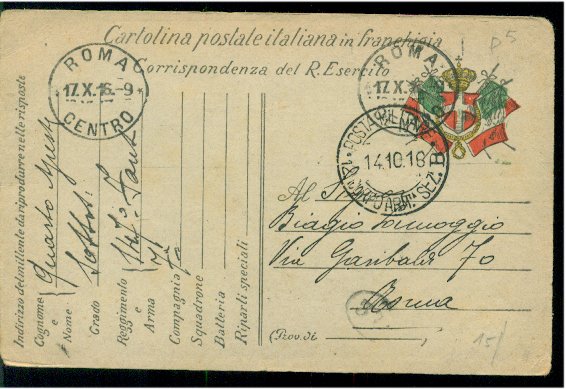 Cartolina postale italiana in franchigia
Corrispondenza del R. Esercito
P 5
ROMA
17.X.16.-9
CENTRO
ROMA
17.X.16
POSTA MILITARE
14.10.16
SEZ. B
Al
Biagio
Via Garibaldi 70
Roma
(Prov. di
15/
Indirizzo del mittente da riprodurre nelle risposte
Cognome e Nome Quarto
Grado Sottot.
Reggimento e Arma
Compagnia 7a
Squadrone
Batteria
Riparti speciali